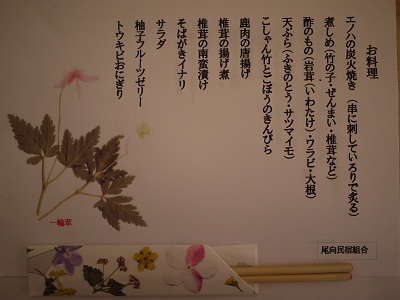 お料理
エノハの炭火焼き（串に刺していろりで炙る）
煮しめ（竹の子・ぜんまい・椎茸など）
酢のもの（岩茸（いわたけ）・ワラビ・大根）
天ぷら（ふきのとう・サツマイモ）
こしゃん竹とごぼうのきんぴら
鹿肉の唐揚げ
椎茸の揚げ煮
椎茸の南蛮漬け
そばがきイナリ
サラダ
柚子フルーツゼリー
トウキビおにぎり
一輪草
尾向民宿組合